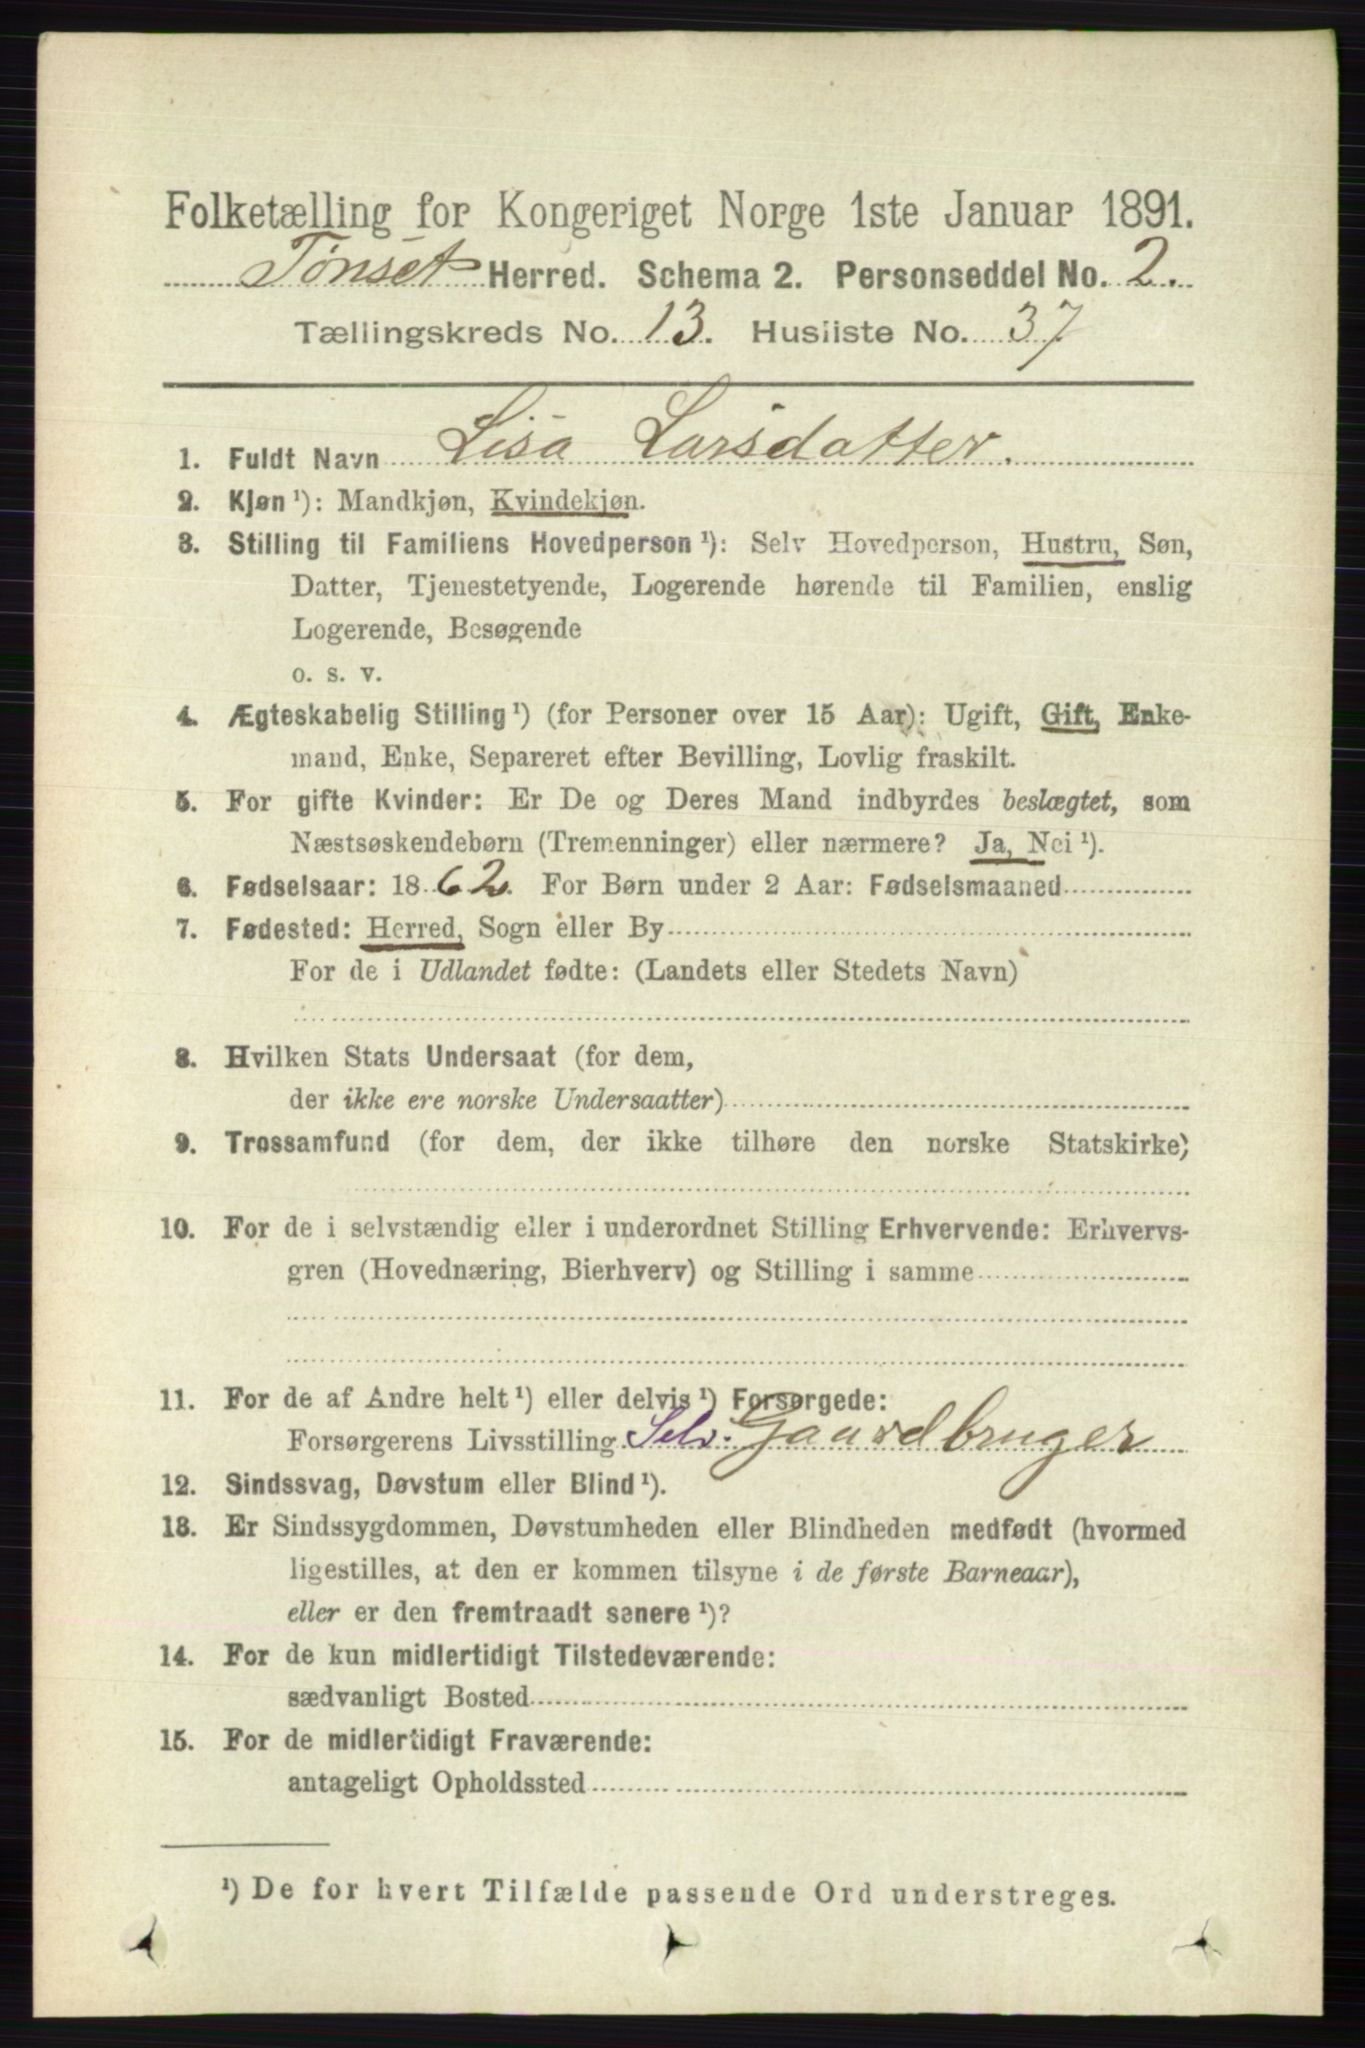 Folketælling for Kongeriget Norge 1ste Januar 1891.
Tønset Herred. Schema 2. Personseddel No. 2.
Tællingskreds No. 13. Husliste No. 37
1. Fuldt Navn Lisa Larsdatter.
2. Kjøn ¹): Mandkjøn, Kvindekjøn.
3. Stilling til Familiens Hovedperson ¹): Selv Hovedperson, Hustru, Søn,
Datter, Tjenestetyende, Logerende hørende til Familien, enslig
Logerende, Besøgende
o. s. v.
4. Ægteskabelig Stilling ¹) (for Personer over 15 Aar): Ugift, Gift, Enke-
mand, Enke, Separeret efter Bevilling, Lovlig fraskilt.
5. For gifte Kvinder: Er De og Deres Mand indbyrdes beslægtet, som
Næstsøskendebørn (Tremenninger) eller nærmere? Ja, Nei ¹).
6. Fødselsaar: 1862. For Børn under 2 Aar: Fødselsmaaned
7. Fødested: Herred, Sogn eller By
For de i Udlandet fødte: (Landets eller Stedets Navn)
8. Hvilken Stats Undersaat (for dem,
der ikke ere norske Undersaatter)
9. Trossamfund (for dem, der ikke tilhøre den norske Statskirke)
10. For de i selvstændig eller i underordnet Stilling Erhvervende: Erhvervs-
gren (Hovednæring, Bierhverv) og Stilling i samme
11. For de af Andre helt ¹) eller delvis ¹) Forsørgede:
Forsørgerens Livsstilling Selv. Gaardbruger
12. Sindssvag, Døvstum eller Blind ¹).
13. Er Sindssygdommen, Døvstumheden eller Blindheden medfødt (hvormed
ligestilles, at den er kommen tilsyne i de første Barneaar),
eller er den fremtraadt senere ¹)?
14. For de kun midlertidigt Tilstedeværende:
sædvanligt Bosted
15. For de midlertidigt Fraværende:
antageligt Opholdssted
¹) De for hvert Tilfælde passende Ord understreges.